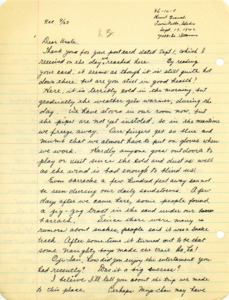 Rec 9/23
Hunt Branch
Twin Falls, Idaho
Sept. 17, 1942
Dear Uncle,
Thank you for your post card dated Sept 1, which I
received on the day I reached here. By reading
your card, it seems as though it is still quite hot
down there, but are you still in good health?
Here, it is terribly cold in the morning, but
gradually the weather gets warmer, during the
day. We have stoves in our room now, but
the pipes are not yet installed, so in the meantime
we freeze away. Our fingers get so blue and
numb that we almost have to put on gloves when
we work. Hardly anyone goes outdoors to
play or visit since the cold and dust as well
as the wind is bad enough to blind us.
Even barracks a few hundred feet away cannot
be seen during our daily sandstorms. A few
days after we came here, some people found
a zig-zag trail in the sand under our
barrack! Since there were many
rumors about snakes, people said it was snake
track. After sometime it turned out to be that
some naughty boys made the trail. Ha, ha!
how did you enjoy the entertainment you
had recently? Was it a big success?
I believe I'll tell you about the trip we made
to this place. Perhaps may have